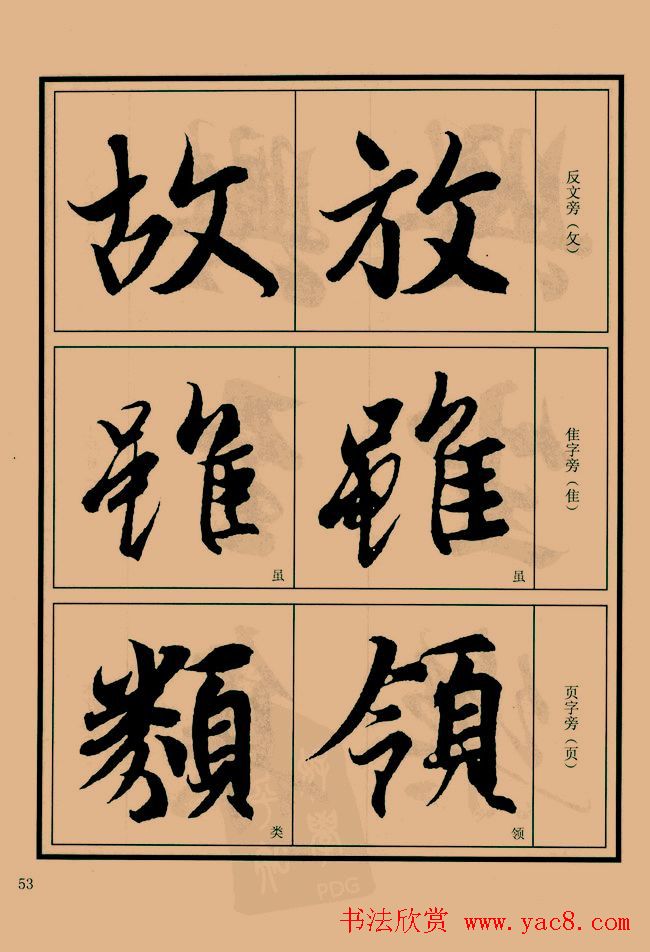 反文旁（攵）
放
故
隹字旁（隹）
雖
虽
雖
虽
页字旁（页）
領
领
類
类
53
PDG
书法欣赏 www.yac8.com